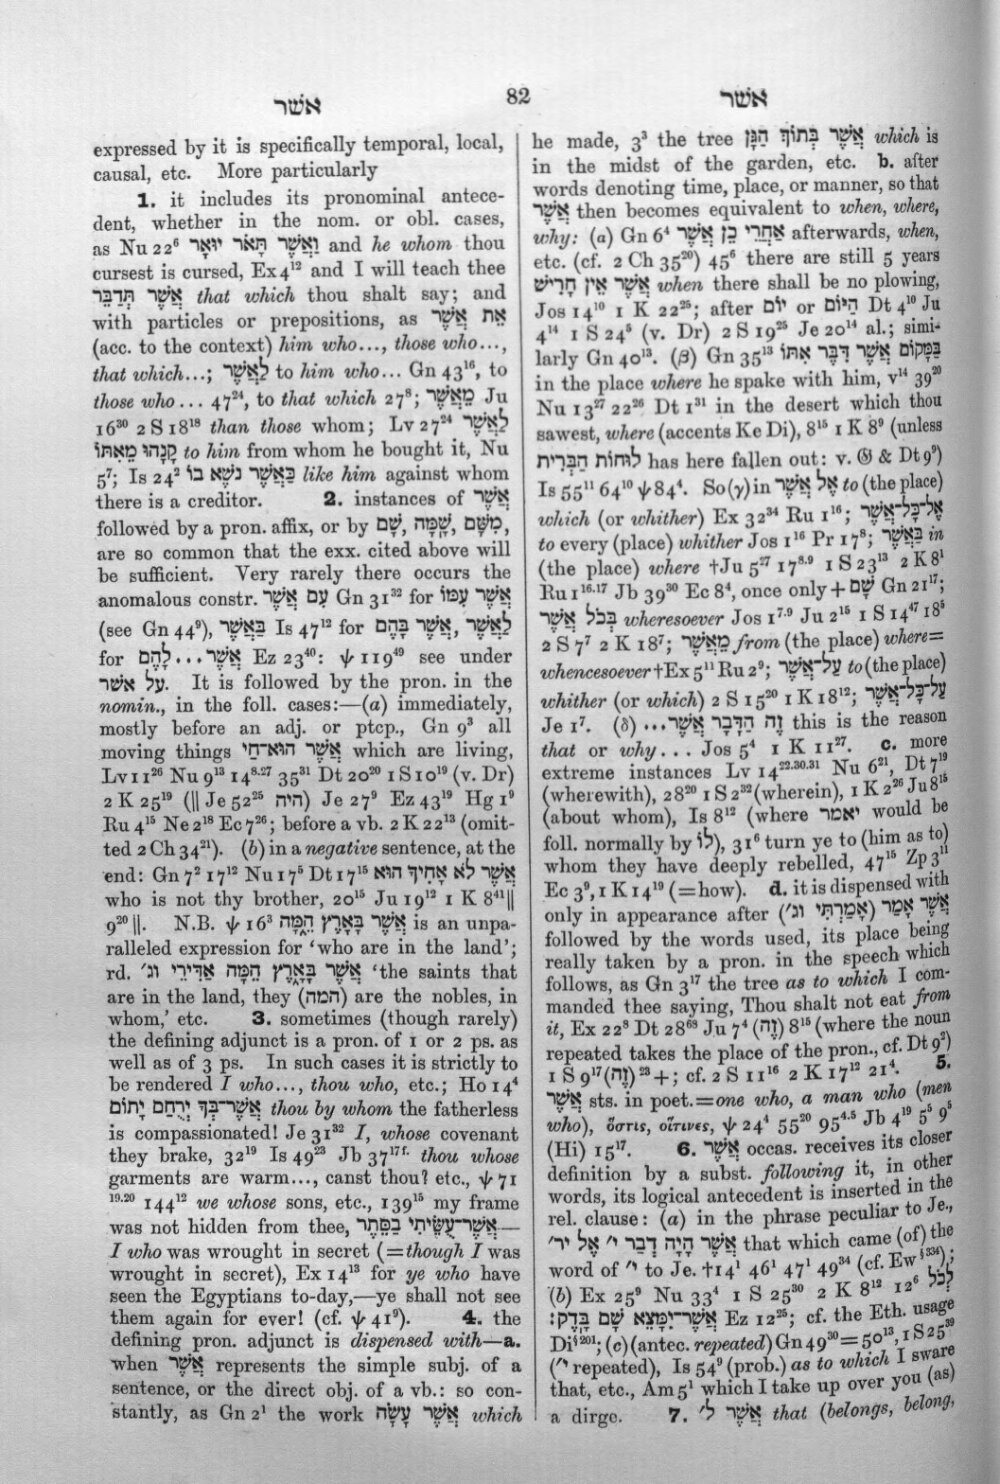 אשׁר
82
אשׁר
expressed by it is specifically temporal, local,
causal, etc. More particularly
1. it includes its pronominal antece-
dent, whether in the nom. or obl. cases,
as Nu 22⁶ וַאֲשֶׁר תָּאֹר יוּאָר and he whom thou
cursest is cursed, Ex 4¹² and I will teach thee
אֲשֶׁר תְּדַבֵּר that which thou shalt say; and
with particles or prepositions, as אֵת אֲשֶׁר
(acc. to the context) him who..., those who...,
that which...; לַאֲשֶׁר to him who... Gn 43¹⁶, to
those who... 47²⁴, to that which 27⁸; מֵאֲשֶׁר Ju
16³⁰ 2 S 18¹⁸ than those whom; Lv 27²⁴ לַאֲשֶׁר
קָנָהוּ מֵאִתּוֹ to him from whom he bought it, Nu
5⁷; Is 24² כַּאֲשֶׁר נֹשֶׁא בוֹ like him against whom
there is a creditor. 2. instances of אֲשֶׁר
followed by a pron. affix, or by מִשָּׁם ,שָׁמָּה ,שָׁם,
are so common that the exx. cited above will
be sufficient. Very rarely there occurs the
anomalous constr. עִם אֲשֶׁר Gn 31³² for אֲשֶׁר עִמּוֹ
(see Gn 44⁹), בַּאֲשֶׁר Is 47¹² for לַאֲשֶׁר ,אֲשֶׁר בָּהֶם
for אֲשֶׁר...לָהֶם Ez 23⁴⁰: ψ 119⁴⁹ see under
על אשר. It is followed by the pron. in the
nomin., in the foll. cases:—(a) immediately,
mostly before an adj. or ptcp., Gn 9³ all
moving things אֲשֶׁר הוּא־חַי which are living,
Lv 11²⁶ Nu 9¹³ 14⁸·²⁷ 35³¹ Dt 20²⁰ 1 S 10¹⁹ (v. Dr)
2 K 25¹⁹ (|| Je 52²⁵ היה) Je 27⁹ Ez 43¹⁹ Hg 1⁹
Ru 4¹⁵ Ne 2¹⁸ Ec 7²⁶; before a vb. 2 K 22¹³ (omit-
ted 2 Ch 34²¹). (b) in a negative sentence, at the
end: Gn 7² 17¹² Nu 17⁵ Dt 17¹⁵ אֲשֶׁר לֹא אָחִיךָ הוּא
who is not thy brother, 20¹⁵ Ju 19¹² 1 K 8⁴¹||
9²⁰ ||. N.B. ψ 16³ אֲשֶׁר בָּאָרֶץ הֵמָּה is an unpa-
ralleled expression for ‘who are in the land’;
rd. אֲשֶׁר בָּאָרֶץ הֵמָּה אַדִּירֵי וג׳ ‘the saints that
are in the land, they (המה) are the nobles, in
whom,’ etc. 3. sometimes (though rarely)
the defining adjunct is a pron. of 1 or 2 ps. as
well as of 3 ps. In such cases it is strictly to
be rendered I who..., thou who, etc.; Ho 14⁴
אֲשֶׁר־בְּךָ יְרֻחַם יָתוֹם thou by whom the fatherless
is compassionated! Je 31³² I, whose covenant
they brake, 32¹⁹ Is 49²³ Jb 37¹⁷ᶠ· thou whose
garments are warm..., canst thou? etc., ψ 71
¹⁹·²⁰ 144¹² we whose sons, etc., 139¹⁵ my frame
was not hidden from thee, אֲשֶׁר־עֻשֵּׂיתִי בַסֵּתֶר—
I who was wrought in secret (=though I was
wrought in secret), Ex 14¹³ for ye who have
seen the Egyptians to-day,—ye shall not see
them again for ever! (cf. ψ 41⁹). 4. the
defining pron. adjunct is dispensed with—a.
when אֲשֶׁר represents the simple subj. of a
sentence, or the direct obj. of a vb.: so con-
stantly, as Gn 2¹ the work אֲשֶׁר עָשָׂה which
he made, 3³ the tree אֲשֶׁר בְּתוֹךְ הַגָּן which is
in the midst of the garden, etc. b. after
words denoting time, place, or manner, so that
אֲשֶׁר then becomes equivalent to when, where,
why: (α) Gn 6⁴ אַחֲרֵי כֵן אֲשֶׁר afterwards, when,
etc. (cf. 2 Ch 35²⁰) 45⁶ there are still 5 years
אֲשֶׁר אֵין חָרִישׁ when there shall be no plowing,
Jos 14¹⁰ 1 K 22²⁵; after יוֹם or הַיּוֹם Dt 4¹⁰ Ju
4¹⁴ 1 S 24⁵ (v. Dr) 2 S 19²⁵ Je 20¹⁴ al.; simi-
larly Gn 40¹³. (β) Gn 35¹³ בַּמָּקוֹם אֲשֶׁר דִּבֶּר אִתּוֹ
in the place where he spake with him, v¹⁴ 39²⁰
Nu 13²⁷ 22²⁶ Dt 1³¹ in the desert which thou
sawest, where (accents Ke Di), 8¹⁵ 1 K 8⁹ (unless
לוּחוֹת הַבְּרִית has here fallen out: v. 𝔊 & Dt 9⁹)
Is 55¹¹ 64¹⁰ ψ 84⁴. So (γ) in אֶל אֲשֶׁר to (the place)
which (or whither) Ex 32³⁴ Ru 1¹⁶; אֶל־כָּל־אֲשֶׁר
to every (place) whither Jos 1¹⁶ Pr 17⁸; בַּאֲשֶׁר in
(the place) where †Ju 5²⁷ 17⁸·⁹ 1 S 23¹³ 2 K 8¹
Ru 1¹⁶·¹⁷ Jb 39³⁰ Ec 8⁴, once only + שָׁם Gn 21¹⁷;
בְּכֹל אֲשֶׁר wheresoever Jos 1⁷·⁹ Ju 2¹⁵ 1 S 14⁴⁷ 18⁵
2 S 7⁷ 2 K 18⁷; מֵאֲשֶׁר from (the place) where=
whencesoever †Ex 5¹¹ Ru 2⁹; עַל־אֲשֶׁר to (the place)
whither (or which) 2 S 15²⁰ 1 K 18¹²; עַל־כָּל־אֲשֶׁר
Je 1⁷. (δ) זֶה הַדָּבָר אֲשֶׁר... this is the reason
that or why... Jos 5⁴ 1 K 11²⁷. c. more
extreme instances Lv 14²²·³⁰·³¹ Nu 6²¹, Dt 7¹⁹
(wherewith), 28²⁰ 1 S 2³² (wherein), 1 K 2²⁶ Ju 8¹⁵
(about whom), Is 8¹² (where יאמר would be
foll. normally by לוֹ), 31⁶ turn ye to (him as to)
whom they have deeply rebelled, 47¹⁵ Zp 3¹¹
Ec 3⁹, 1 K 14¹⁹ (=how). d. it is dispensed with
only in appearance after אֲשֶׁר אָמַר (אָמַרְתִּי וג׳)
followed by the words used, its place being
really taken by a pron. in the speech which
follows, as Gn 3¹⁷ the tree as to which I com-
manded thee saying, Thou shalt not eat from
it, Ex 22⁸ Dt 28⁶⁸ Ju 7⁴ (זֶה) 8¹⁵ (where the noun
repeated takes the place of the pron., cf. Dt 9²)
1 S 9¹⁷ (זֶה) ²³ +; cf. 2 S 11¹⁶ 2 K 17¹² 21⁴. 5.
אֲשֶׁר sts. in poet.=one who, a man who (men
who), ὅστις, οἵτινες, ψ 24⁴ 55²⁰ 95⁴·⁵ Jb 4¹⁹ 5⁵ 9⁵
(Hi) 15¹⁷. 6. אֲשֶׁר occas. receives its closer
definition by a subst. following it, in other
words, its logical antecedent is inserted in the
rel. clause: (a) in the phrase peculiar to Je.,
אֲשֶׁר הָיָה דְבַר י׳ אֶל יר׳ that which came (of) the
word of י׳ to Je. †14¹ 46¹ 47¹ 49³⁴ (cf. Ew§³³⁴);
(b) Ex 25⁹ Nu 33⁴ 1 S 25³⁰ 2 K 8¹² 12⁶ לְכֹל
אֲשֶׁר־יִמָּצֵא שָׁם בָּדֶק: Ez 12²⁵; cf. the Eth. usage
Di§²⁰¹; (c) (antec. repeated) Gn 49³⁰=50¹³, 1 S 25³⁹
(י׳ repeated), Is 54⁹ (prob.) as to which I sware
that, etc., Am 5¹ which I take up over you (as)
a dirge. 7. אֲשֶׁר לְ׳ that (belongs, belong,